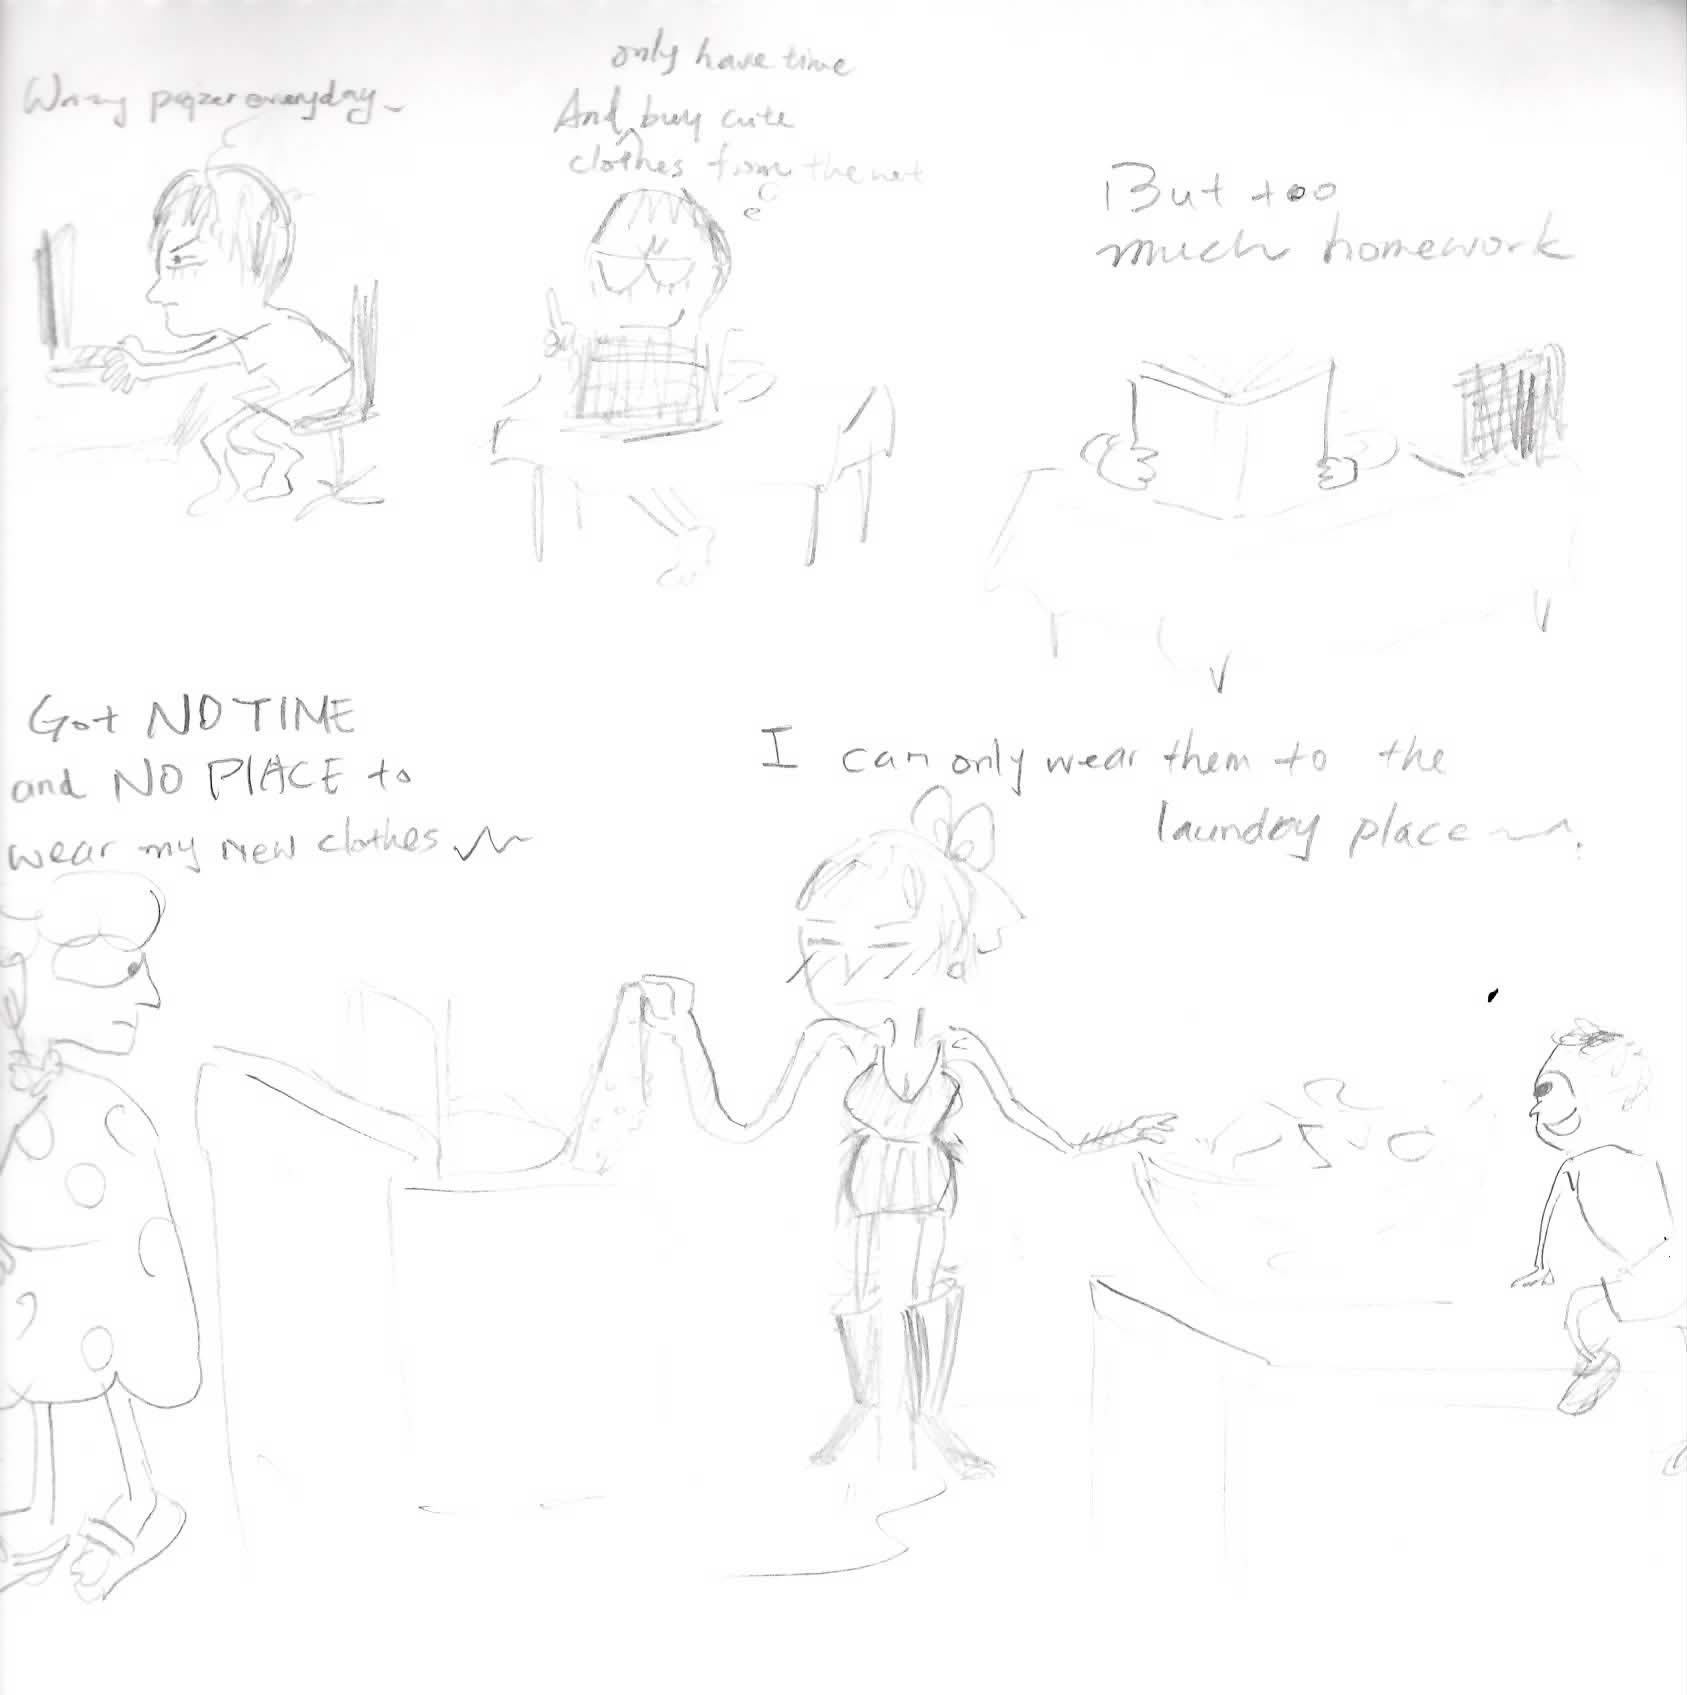 paper everyday~
only have time
And buy cute
clothes from the net
But too
much homework
Got NO TIME
and NO PLACE to
wear my new clothes
I can only wear them to the
laundry place